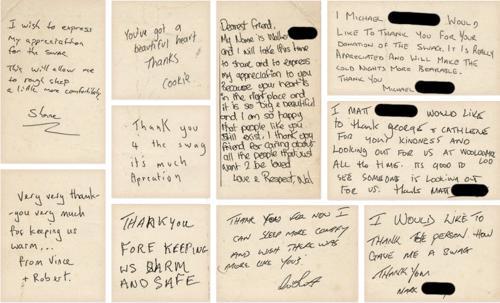 I wish to express
my appreciation
for the swag
This will allow me
to rough sleep
a little more comfortably
Shane
You've got a
beautiful heart
Thanks
Cookie
Dearest Friend,
My Name is
and I will take this time
to share and to express
my appreciation to you
because your heart is
in the right place and
it is so big & beautiful
and I am so happy
that people like you
still exist, I thank you
friend for caring about
all the people that just
want 2 be loved
Love & Respect,
I MICHAEL WOULD
LIKE TO THANK YOU FOR YOUR
DONATION OF THE SWAG. IT IS REALLY
APPRECIATED AND WILL MAKE THE
COLD NIGHTS MORE BEARABLE.
THANK YOU
MICHAEL
Thank you
4 the swag
it's much
Apreation
I MATT WOULD LIKE
to thank george & CATHLEENE
FOR YOUR KINDNESS AND
LOOKING OUT FOR US AT WOOLOOMOO
LOO
ALL the TIME. ITS GOOD TO
SEE SOMEONE IS LOOKING OUT
FOR US. thanks MATT
Very very thank-
-you very much
for keeping us
warm...
From Vince
+ Robert.
THANKYOU
FORE KEEPING
US WARM
AND SAFE
THANK YOU FOR NOW I
CAN SLEEP MORE COMFY
AND WISH THERE WAS
MORE LIKE YOU.
I WOULD LIKE TO
THANK THE PERSON HOW
GAVE ME A SWAG
THANK YOU
MARK